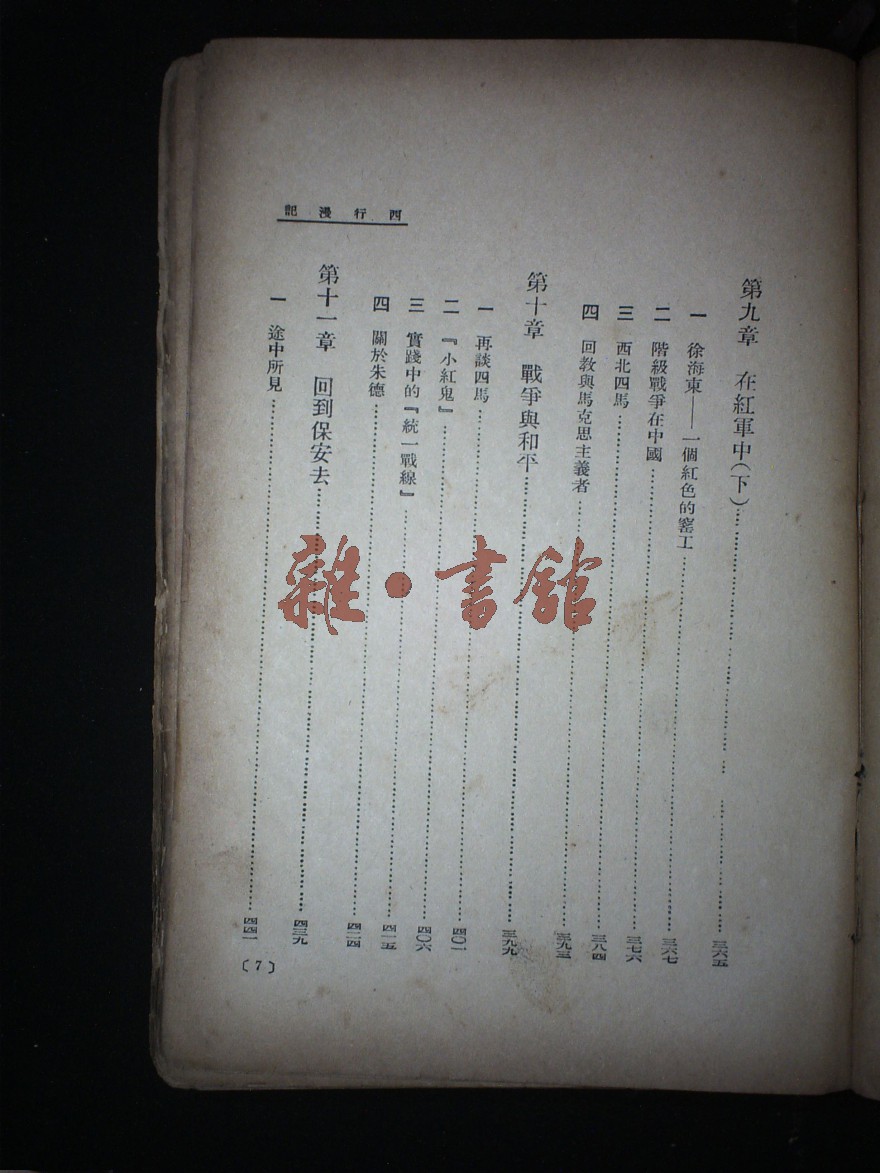 西行漫記
第九章 在紅軍中(下)……三六五
一 徐海東——一個紅色的窰工……三六七
二 階級戰爭在中國……三七六
三 西北四馬……三八四
四 回教與馬克思主義者……三九三
第十章 戰爭與和平……三九九
一 再談四馬……四〇一
二 『小紅鬼』……四〇六
三 實踐中的『統一戰線』……四一五
四 關於朱德……四二四
第十一章 回到保安去……四三九
一 途中所見……四四一
〔7〕
雜·書館